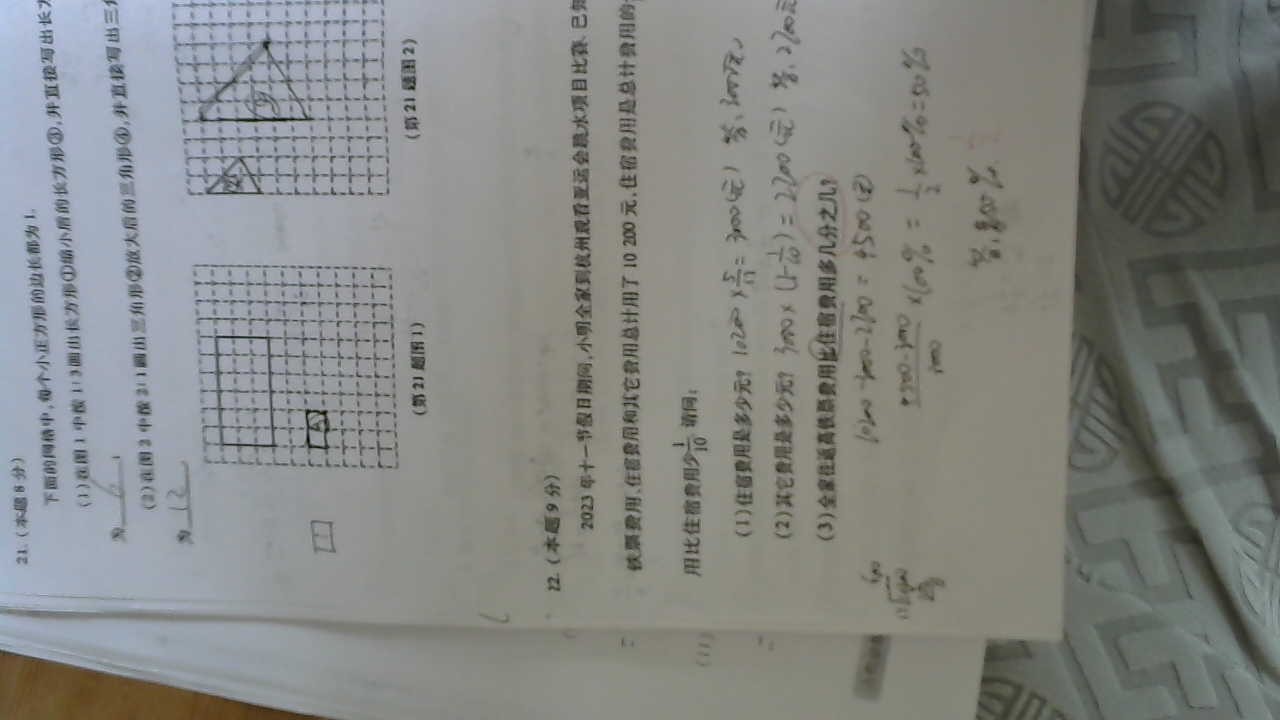 21.(本题8分)
下面的网格中,每个小正方形的边长都为1.
(1)在图1中按1:3画出长方形①缩小后的长方形③,并直接写出长方
为 6 ;
(2)在图2中按2:1画出三角形②放大后的三角形④,并直接写出三角
为 12 .
(第21题图1)
(第21题图2)
22.(本题9分)
2023年十一节假日期间,小明全家到杭州观看亚运会跳水项目比赛.已知
铁票费用、住宿费用和其它费用总计用了10 200元,住宿费用是总计费用的
用比住宿费用少1/10 请问:
(1)住宿费用是多少元? 10200×5/17=3000(元) 答:3000元
(2)其它费用是多少元? 3000×(1-1/10)=2700(元) 答:2700元
(3)全家往返高铁票费用比住宿费用多几分之几?
10200-3000-2700=4500(元)
4500-3000/3000 ×100%=1/2×100%=50%
答: 50%. 1/2